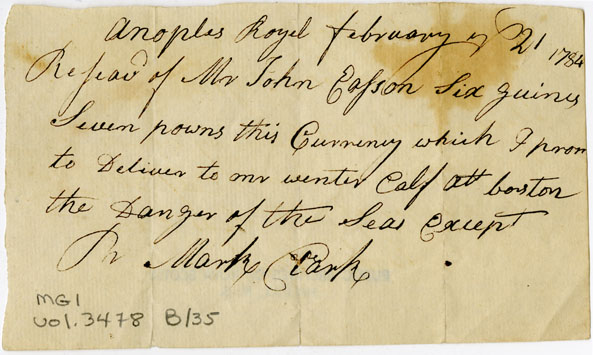 Anoples Royel february ye 21 1784
Reseavd of Mr John Easson Six guines
Seven powns this Currency which I prom
to Deliver to mr wenter Calf att boston
the Danger of the Seas Except
Pr Mark Clark
MG1
vol. 3478 B/35